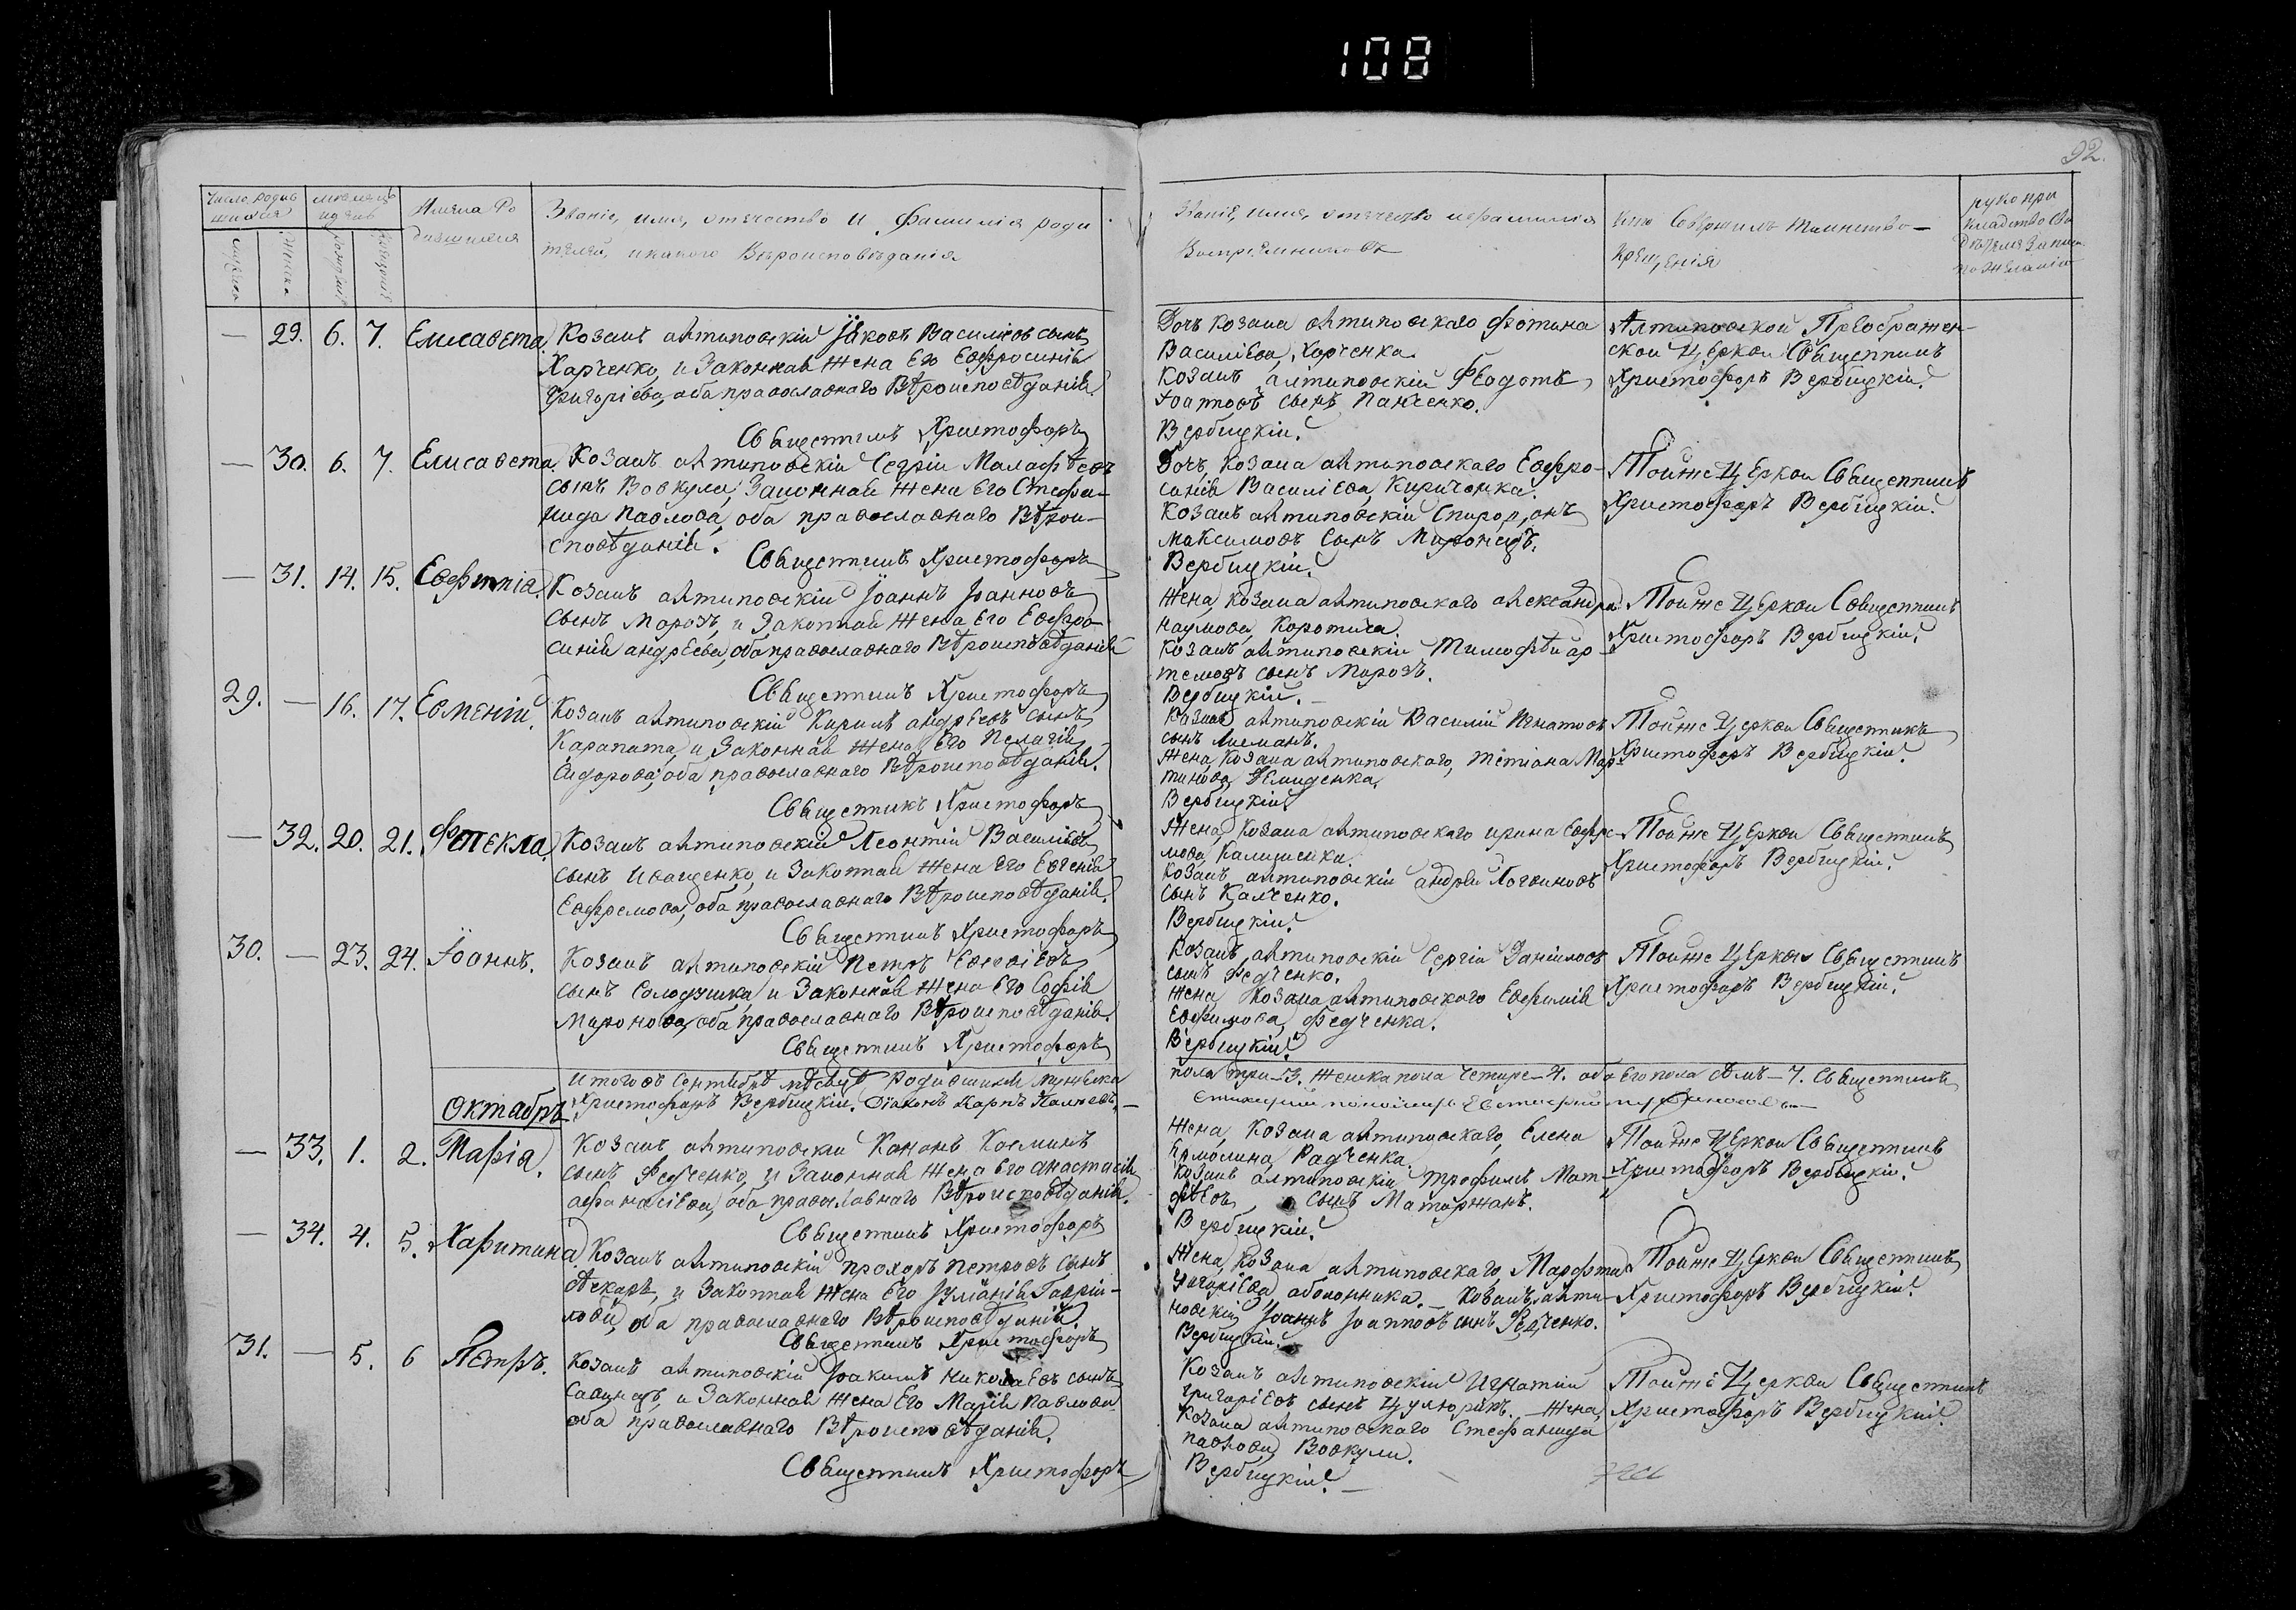 108
92.
Число родив
шихся
мужеска
женска
месяцъ
и день
рожденія
крещенія
Имена Ро
дившихся
Званіе, имя, отечество и фамилія роди
телей, и какого Вѣроисповѣданія
Званіе, имя, отечество и фамилія
Воспріемниковъ
кто Совершилъ таинство
Крещенія
рукопри
кладство сви
дѣтелей записи
по желанію
— 29. 6. 7. Елисавета.
Козакъ антиповскій Іаковъ Василіевъ сынъ
Харченко, и Законная жена Его Евфросинія
Григоріева, оба православнаго Вѣроисповѣданія.
Священникъ Христофоръ
Дочь козака антиповскаго Фотина
Василіева, Харченка.
Козакъ антиповскій Феодотъ
Іоанновъ сынъ Панченко.
Вербицкій.
Антиповской Преображен-
ской Церкви Священникъ
Христофоръ Вербицкій.
— 30. 6. 7. Елисавета.
Козакъ антиповскій Сергій Малафѣевъ
сынъ Вовкула, Законная жена Его Стефа-
нида Павлова, оба православнаго Вѣрои-
сповѣданія.
Священникъ Христофоръ
Дочь козака антиповскаго Евфро-
синія Василіева, Кириченка.
Козакъ антиповскій Спиридонъ
Максимовъ сынъ Миронецъ.
Вербицкій.
Тойже Церкви Священникъ
Христофоръ Вербицкій.
— 31. 14. 15. Евфимія.
Козакъ антиповскій Іоаннъ Іоанновъ
сынъ Морозъ, и Законная жена Его Евфро-
синія андреева, оба православнаго Вѣроисповѣданія
Священникъ Христофоръ
Жена козака антиповскаго александра
наумова, Коротича.
Козакъ антиповскій Тимофей ар-
темовъ сынъ Морозъ.
Вербицкій.
Тойже Церкви Священникъ
Христофоръ Вербицкій.
29. — 16. 17. Евменій.
Козакъ антиповскій Кирилъ андреевъ сынъ
Карапата, и Законная жена Его Пелагія
Сидорова, оба православнаго Вѣроисповѣданія.
Священникъ Христофоръ
Козакъ антиповскій Василій Игнатовъ
сынъ Лисманъ.
Жена козака антиповскаго, тетіана Мар-
тинова, Демиденка.
Вербицкій.
Тойже Церкви Священникъ
Христофоръ Вербицкій.
— 32. 20. 21. Фтекла.
Козакъ антиповскій Леонтій Василіевъ
сынъ Иващенко, и Законная жена Его Евгенія
Евфремова, оба православнаго Вѣроисповѣданія.
Священникъ Христофоръ
Жена козака антиповскаго ирина Евфре-
мова, Калиненка.
Козакъ антиповскій андрей Логвиновъ
сынъ Калченко.
Вербицкій.
Тойже Церкви Священникъ
Христофоръ Вербицкій.
30. — 23. 24. Іоаннъ.
Козакъ антиповскій Петръ Евсевіевъ
сынъ Солодушка и Законная жена Его Софія
Миронова, оба православнаго Вѣроисповѣданія.
Священникъ Христофоръ
Козакъ антиповскій Сергій Даніиловъ
сынъ Федченко.
Жена козака антиповскаго Евфимія
Евфимова, Федченка.
Вербицкій.
Тойже Церкви Священникъ
Христофоръ Вербицкій.
Итого въ Сентябрѣ мѣсяцѣ Родившихся мужеска
пола три — 3. женска пола четире — 4. обоего пола семь — 7. Священникъ
Христофоръ Вербицкій. Діаконъ Карпъ
Октябрь
— 33. 1. 2. Марія.
Козакъ антиповскій Кононъ Косминъ
сынъ Федченко, и Законная жена Его анастасія
афанасіева, оба православнаго Вѣроисповѣданія.
Священникъ Христофоръ
Жена козака антиповскаго, Елена
Ермолина, Радченка.
Козакъ антиповскій Трофимъ Мат-
фѣевъ сынъ Маторжанъ.
Вербицкій.
Тойже Церкви Священникъ
Христофоръ Вербицкій.
— 34. 4. 5. Харитина.
Козакъ антиповскій прохоръ петровъ сынъ
Лекарь, и Законная жена Его Іуліанія Гавріи-
лова, оба православнаго Вѣроисповѣданія.
Священникъ Христофоръ
Жена козака антиповскаго Марфта
Григоріева, оболонника. — Козакъ анти-
повскій Іоаннъ Іоанновъ сынъ Федченко.
Вербицкій.
Тойже Церкви Священникъ
Христофоръ Вербицкій.
31. — 5. 6 Петръ.
Козакъ антиповскій Іоакимъ николаевъ сынъ
Савинецъ, и Законная жена Его Марія Павлова
оба православнаго Вѣроисповѣданія.
Священникъ Христофоръ
Козакъ антиповскій Игнатій
григоріевъ сынъ Цулюрикъ. — Жена
Козака антиповскаго Стефанида
павлова, Вовкули.
Вербицкій.
Тойже Церкви Священникъ
Христофоръ Вербицкій.